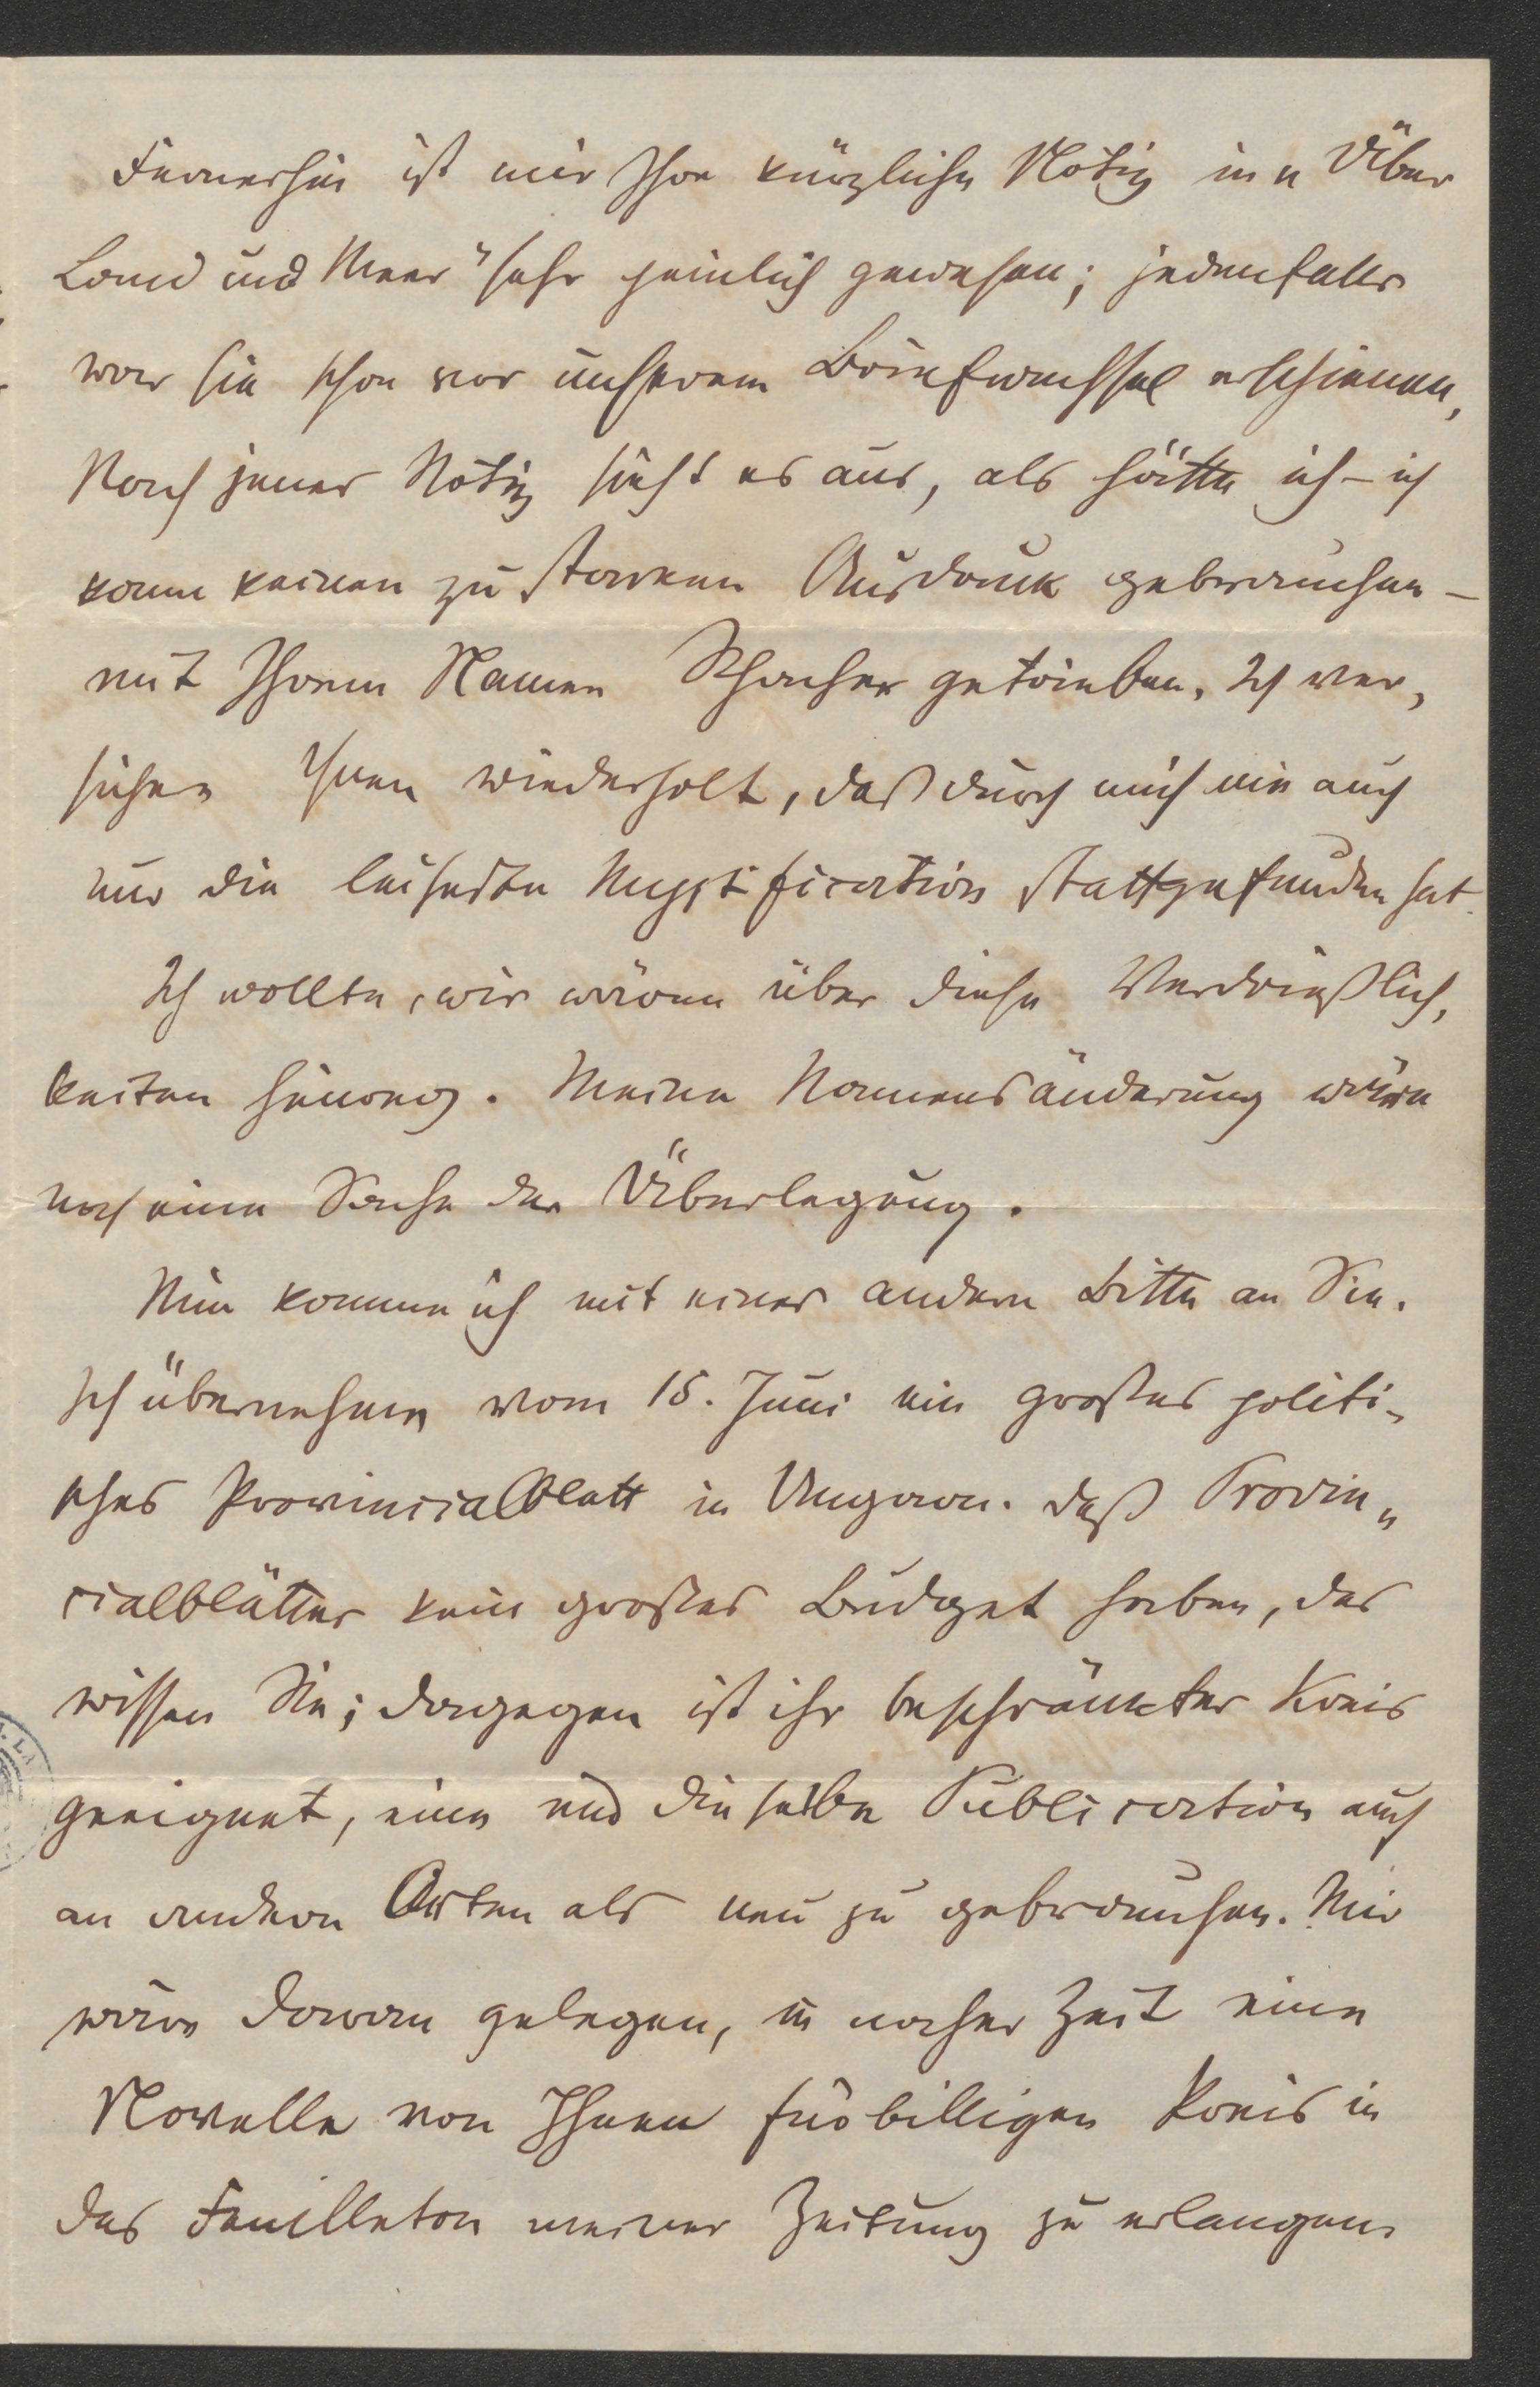 Fernerhin ist mir Ihre kürzliche Notiz in „Über
Land und Meer" sehr peinlich gewesen; jedenfalls
war sie schon vor unserem Briefwechsel erschienen,
Nach jener Notiz sieht es aus, als hätte ich – ich
kann keinen zu starken Ausdruck gebrauchen –
mit Ihrem Namen Schacher getrieben. Ich ver-
sichere Ihnen wiederholt, daß durch mich nie auch
nur die leiseste Mystification stattgefunden hat.
Ich wollte, wir wären über diese Verdrießlich-
keiten hinweg. Meine Namensänderung wäre
noch eine Sache der Überlegung.
Nun komme ich mit einer andern Bitte an Sie.
Ich übernehme vom 15. Juni ein großes politi-
sches Provincialblatt in Ungarn. Daß Provin-
cialblätter kein großes Budget haben, das
wissen Sie; dagegen ist ihr beschränkter Kreis
geeignet, eine und dieselbe Publication auch
an andern Orten als neu zu gebrauchen. Mir
wäre daran gelegen, in naher Zeit eine
Novelle von Ihnen für billigen Preis in
das Feuilleton meiner Zeitung zu erlangen.